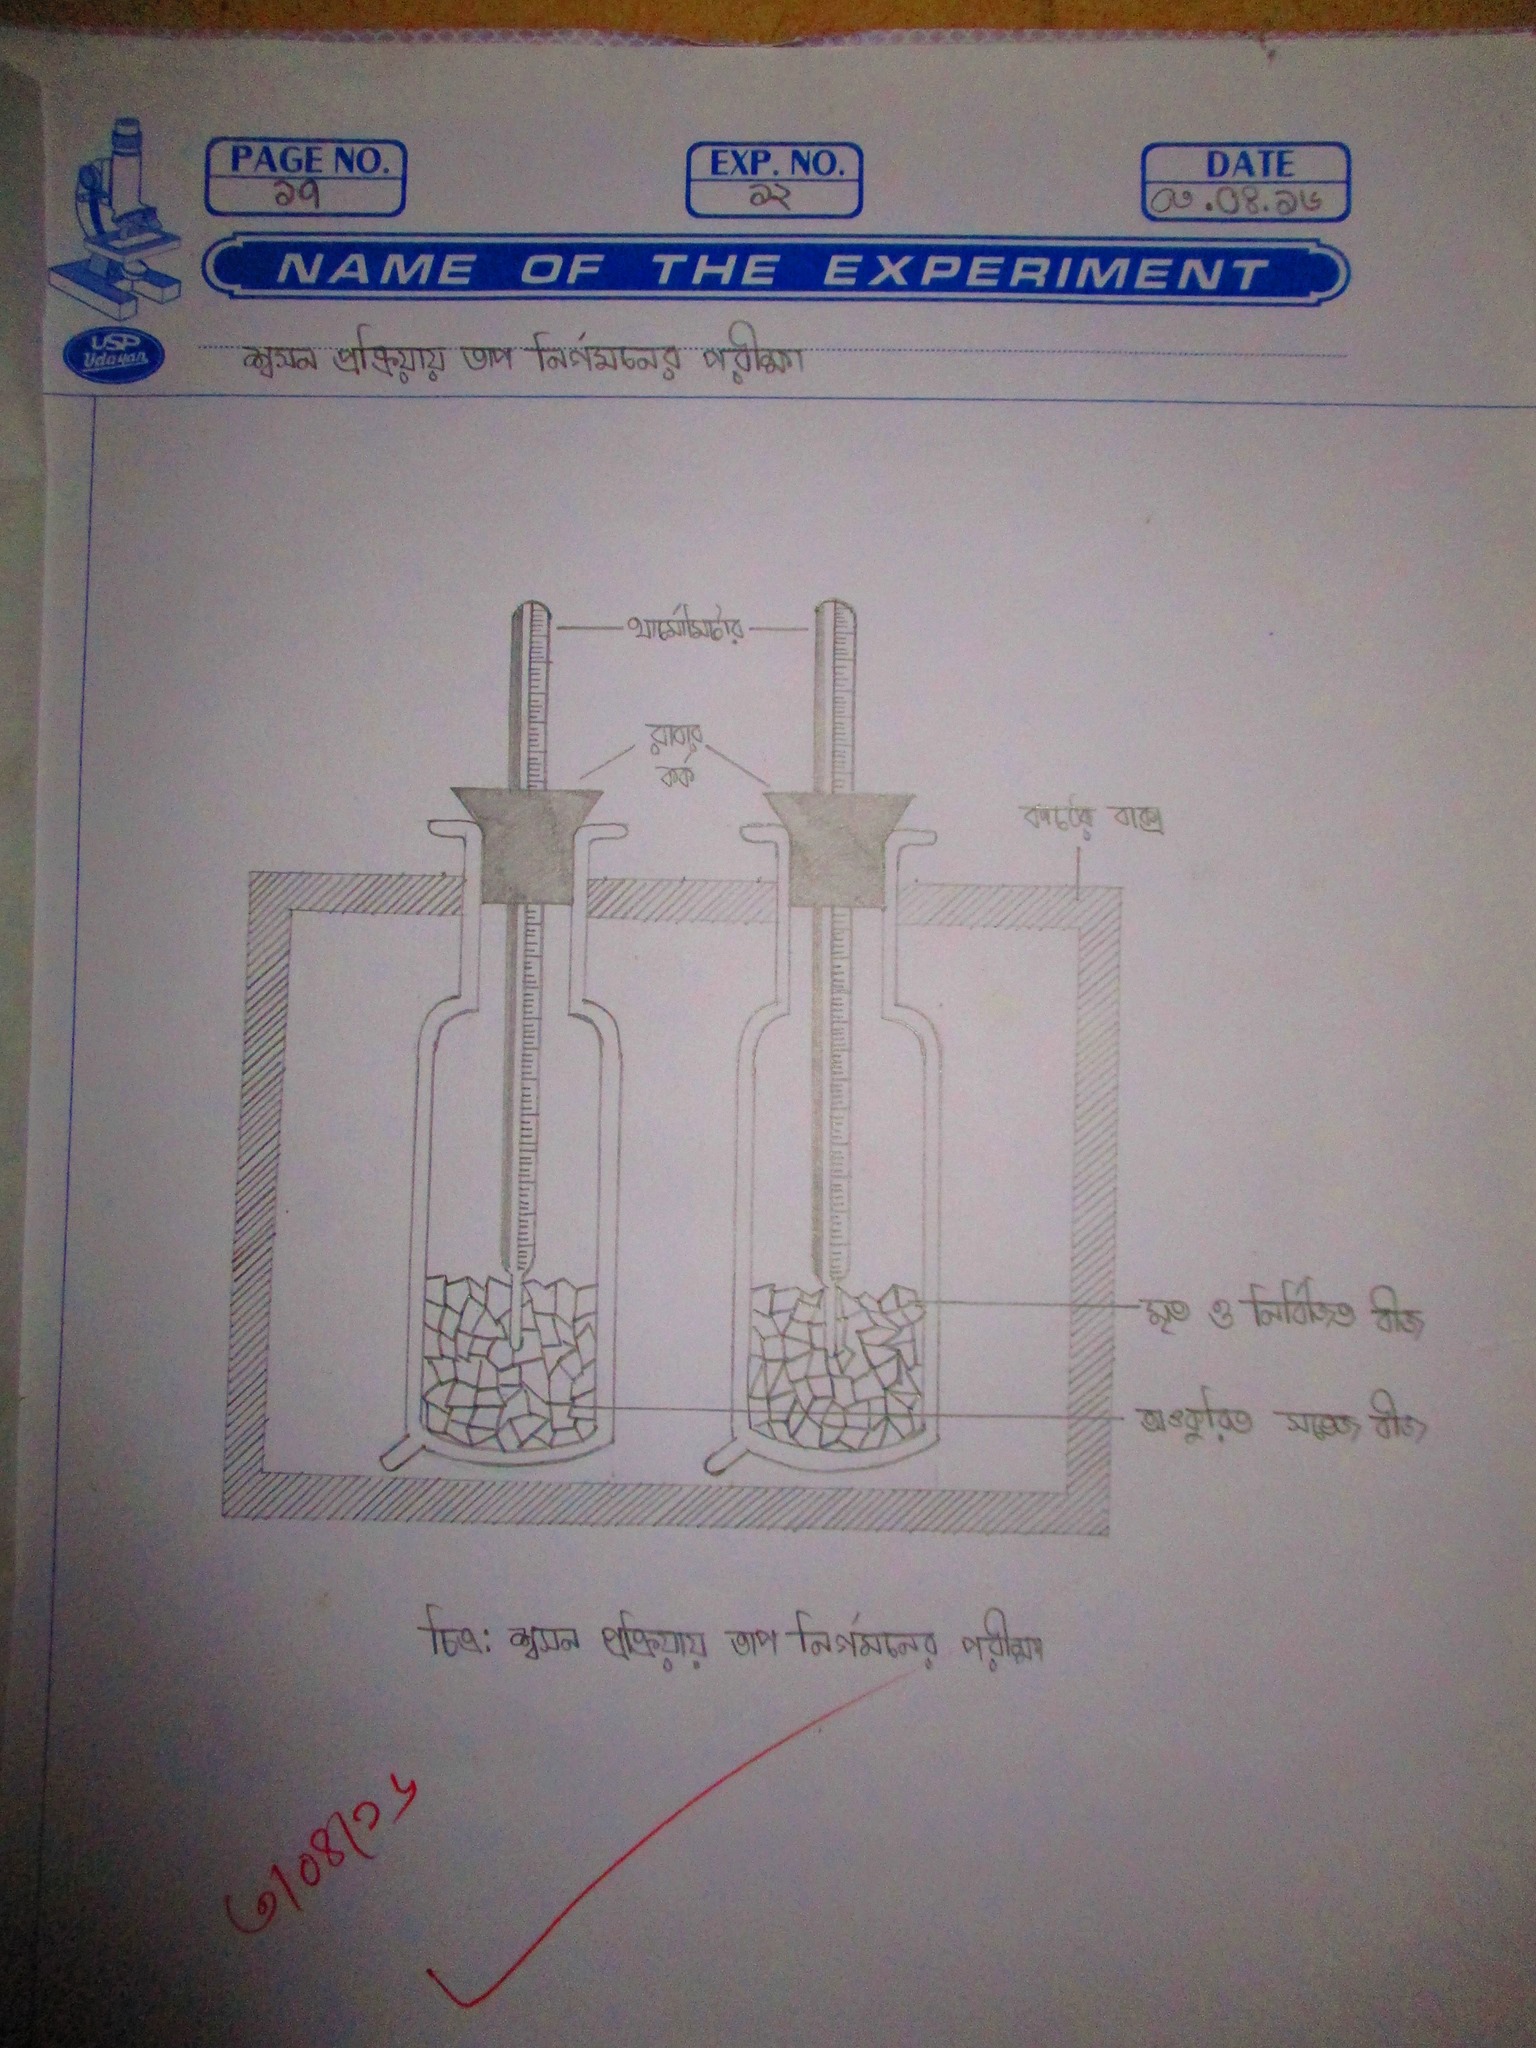 PAGE NO.
১৭
EXP. NO.
১২
DATE
০৩.০৪.১৬
NAME OF THE EXPERIMENT
USP
Udayan
শ্বসন প্রক্রিয়ায় তাপ নির্গমনের পরীক্ষা
থার্মোমিটার
রাবার
কর্ক
কাঠের বাক্স
মৃত ও নির্বীজিত বীজ
অঙ্কুরিত সতেজ বীজ
চিত্র: শ্বসন প্রক্রিয়ায় তাপ নির্গমনের পরীক্ষা
৩/০৪/১৬